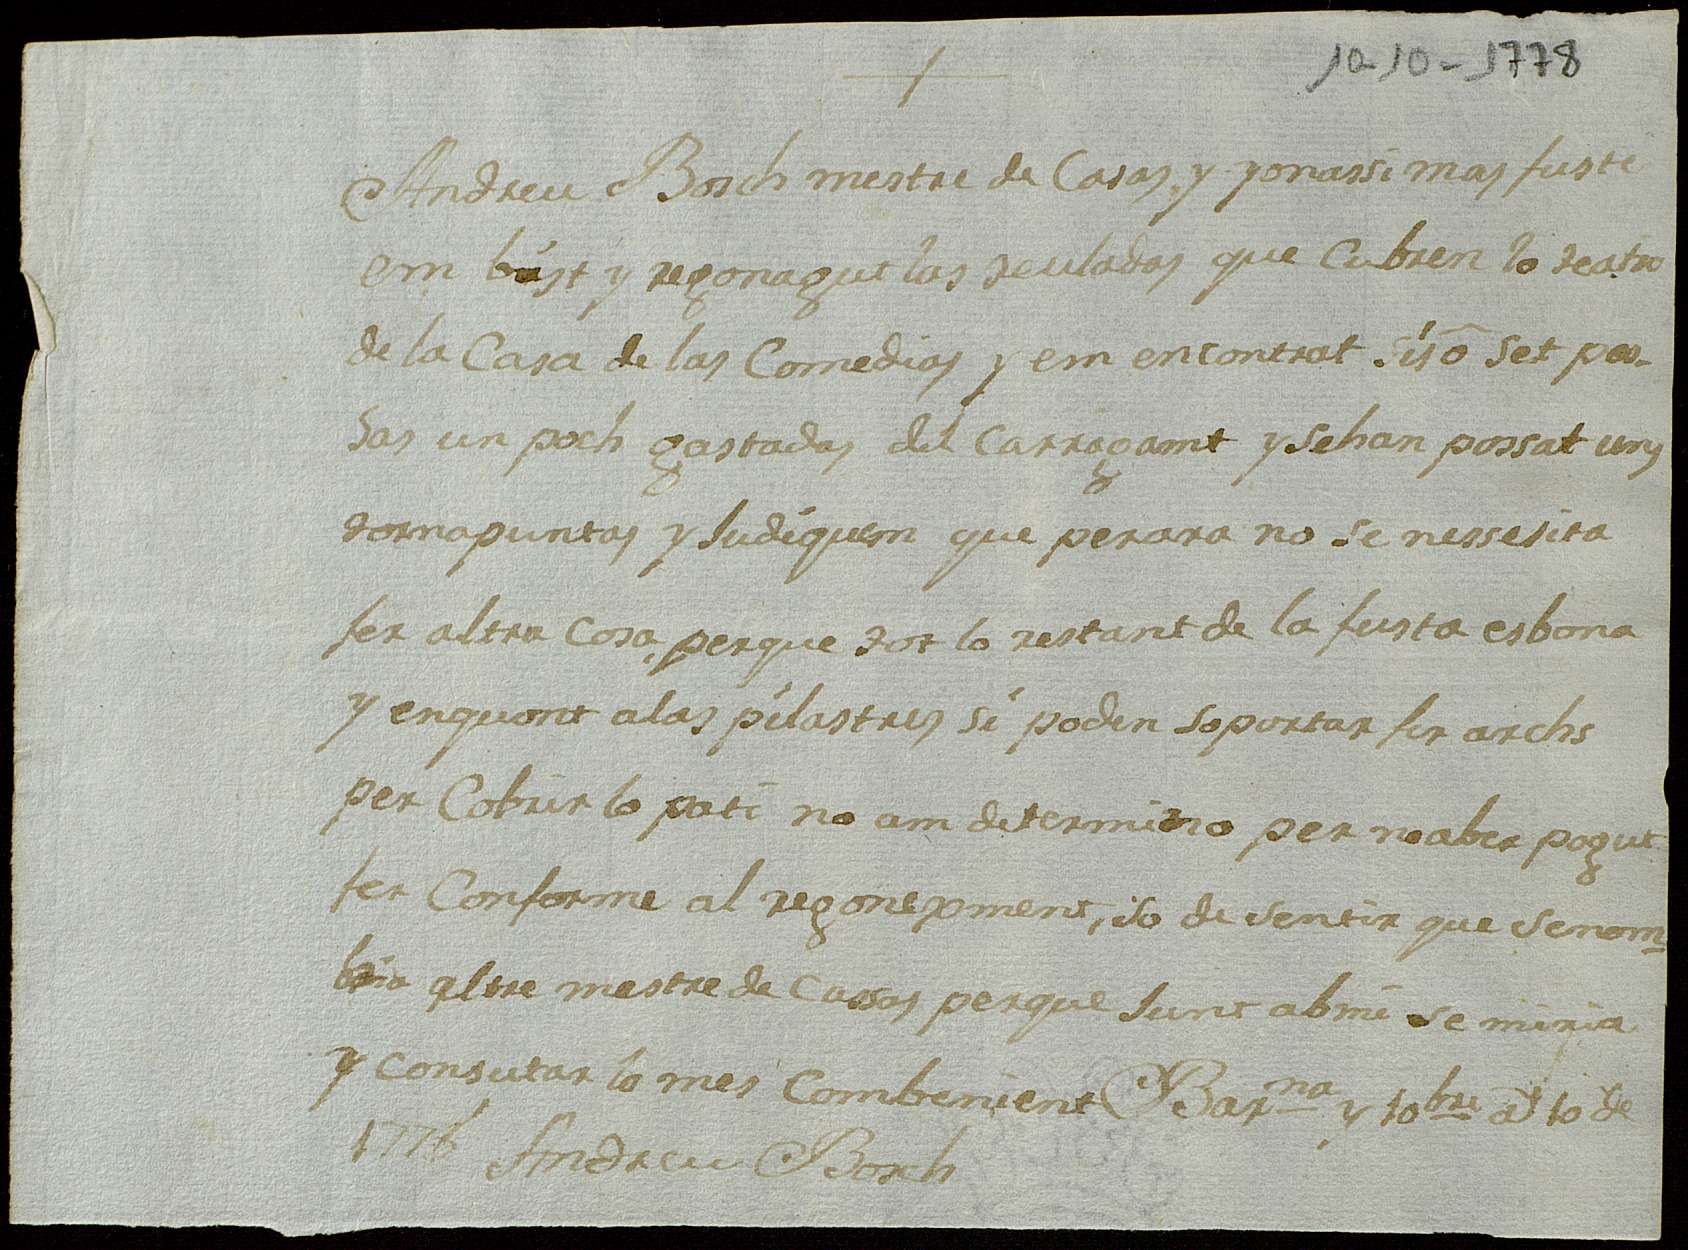 10-10-1778
Andreu Bosch mestre de Casas, y yonassi mas fuste
em bist y regonagut las teuladas que Cubren lo teatro
de la Casa de las Comedias y em encontrat sis ô set pes-
sas un poch gastadas del Carregamt y se han possat uns
tornapuntas y Judiquem que perara no se nessesita
fer altra Cosa, perque tot lo restant de la fusta es bona
y enquont a las pilastres si poden soportar fer archs
per Cobrir lo pati no am determino per no aber pogut
fer Conforme al regonepment, so de sentir que se nom-
bria altre mestre de Cassas perque Junt ab mi se miria
y consutar lo mes Combenient Barna y 10bre a 10 de
1778 Andreu Bosch